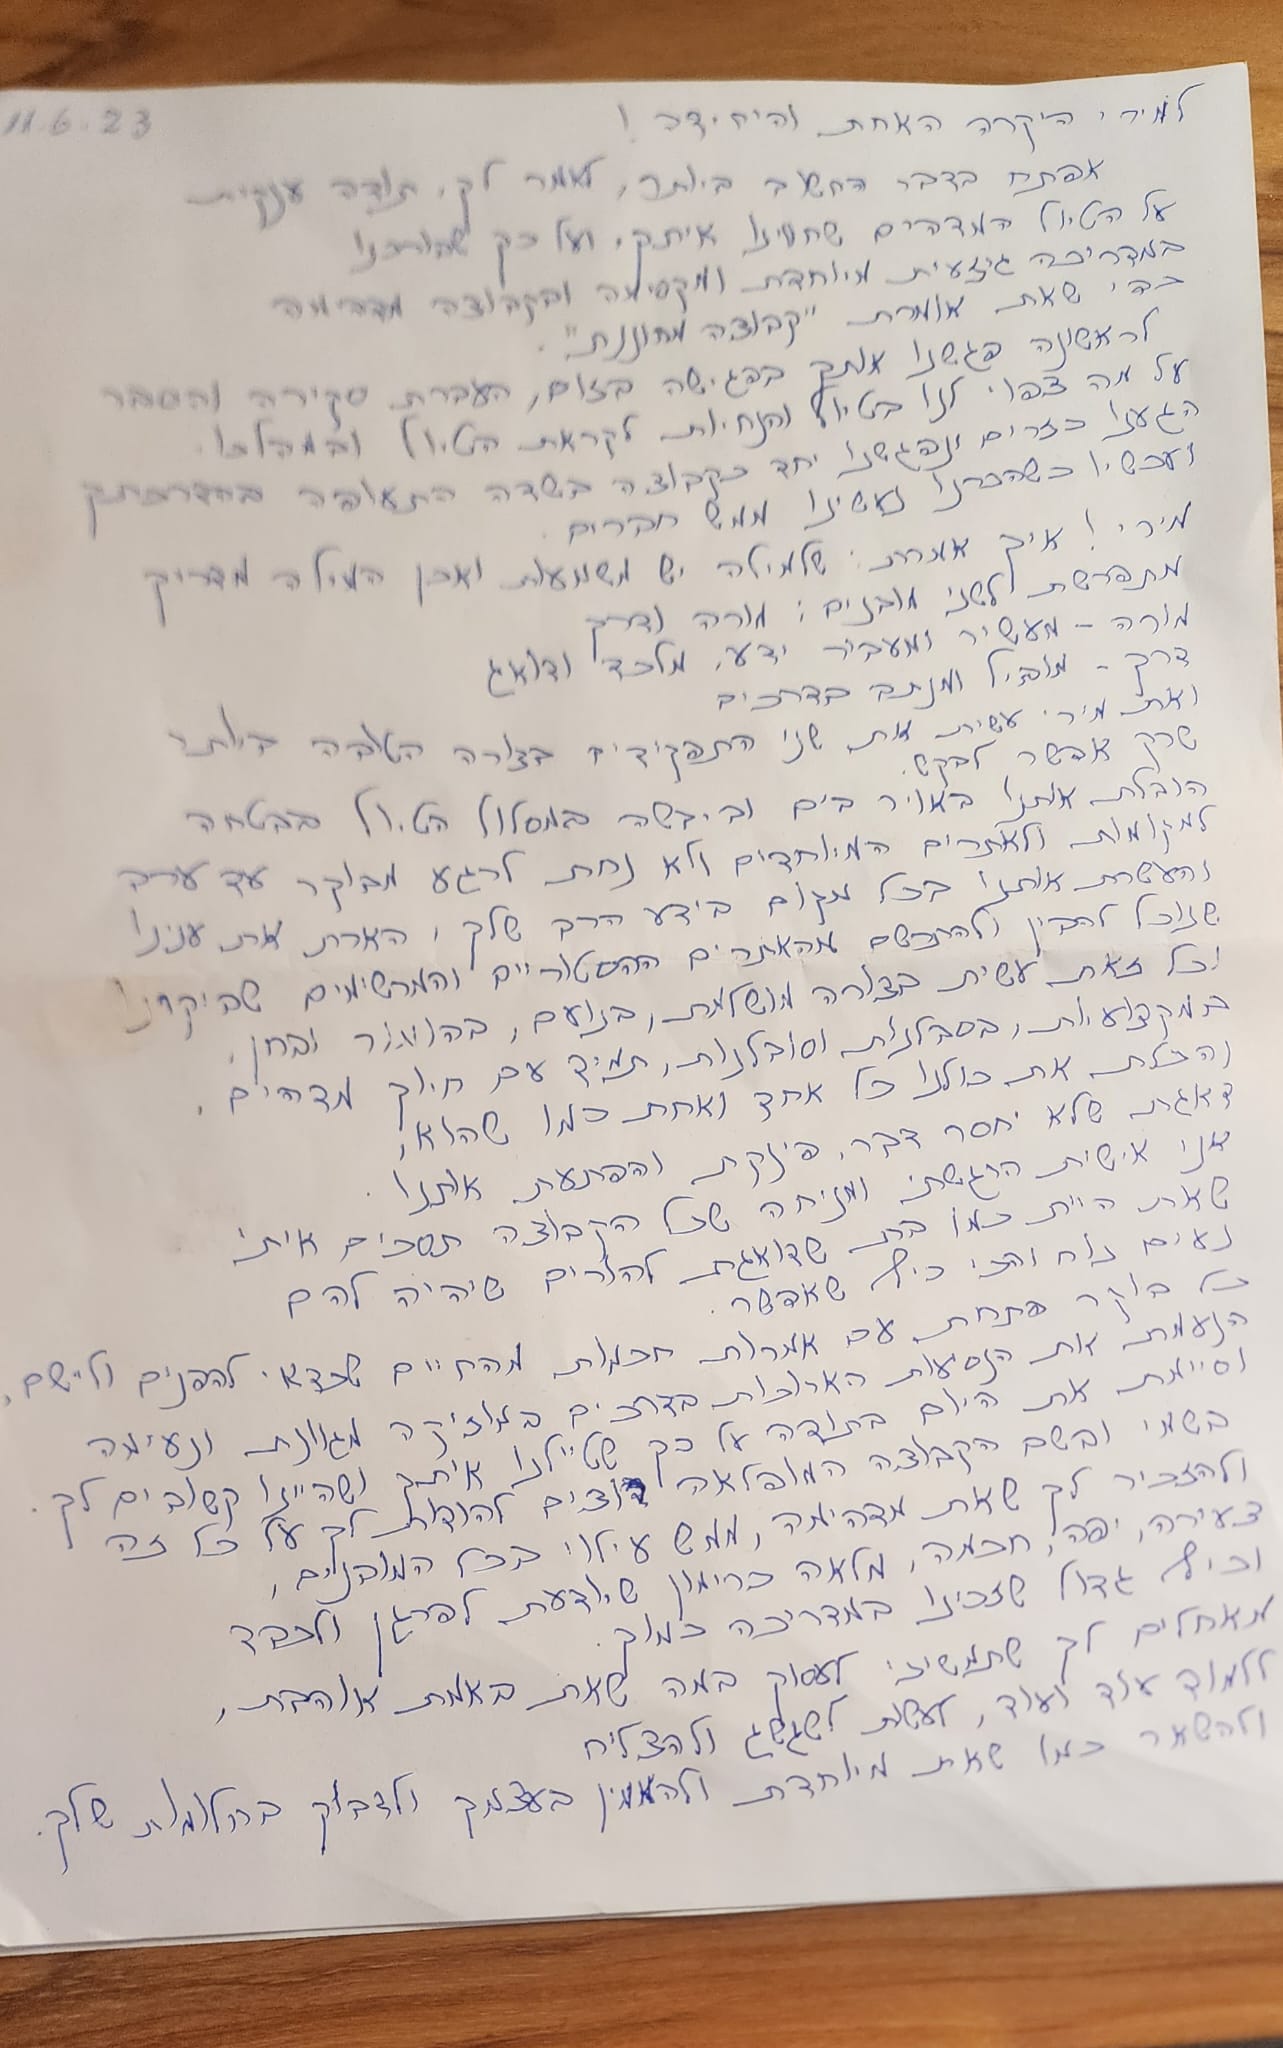 11.6.23
למירי היקרה האחת והיחידה!
אפתח בדבר החשוב ביותר, לאמר לך, תודה ענקית
על הטיול המדהים שחווינו איתך, ועל כך שהודרכנו
במדריכה גיזעית מיוחדת ומקסימה ובקבוצה מדהימה
כפי שאת אומרת "קבוצה מחוננת".
לראשונה פגשנו אותך בפגישה בזום, העברת סקירה והסבר
על מה צפוי לנו בטיול והנחיות לקראת הטיול ובמהלכו.
הגענו כזרים ונפגשנו יחד כקבוצה בשדה התעופה בהדרכתך
ועכשיו כשהכרנו נעשינו ממש חברים.
מירי! איך אמרת: שלמילה יש משמעות ואכן המילה מדריך
מתפרשת לשני מובנים: מורה ודרך
מורה - מעשיר ומעביר ידע, מלכד ודואג
דרך - מוביל ומנתב בדרכים
ואת מירי עשית את שני התפקידים בצורה הטובה ביותר
שרק אפשר לבקש.
הובלת אותנו באויר בים וביבשה במסלול הטיול בבטחה
למקומות ולאתרים המיוחדים ולא נחת לרגע מבוקר עד ערב
והעשרת אותנו בכל מקום בידע הרב שלך, הארת את עינינו
שנוכל להבין ולהתרשם מהאתרים ההסטוריים והמרשימים שביקרנו
וכל זאת עשית בצורה מושלמת, בנועם, בהומור ובחן,
במקצועיות, בסבלנות וסובלנות, תמיד עם חיוך מדהים,
והכלת את כולנו כל אחד ואחת כמו שהוא,
דאגת שלא יחסר דבר, פינקת והפתעת אותנו.
אני אישית הרגשתי ומניחה שכל הקבוצה תסכים איתי
שאת היית כמו בת שדואגת להורים שיהיה להם
נעים נוח והכי כיף שאפשר.
כל בוקר פתחת עם אמרות חכמות מהחיים שכדאי להפנים וליישם,
הנעמת את הנסיעות הארוכות בדרכים במוזיקה מגוונת ונעימה
וסיימת את היום בתודה על כך שטיילנו איתך ושהיינו קשובים לך.
בשמי ובשם הקבוצה המופלאה רוצים להודות לך על כל זה
ולהזכיר לך שאת מדהימה, ממש עילוי בכל המובנים,
צעירה, יפה, חכמה, מלאה כרימון שיודעת לפרגן ולכבד
וכיף גדול שזכינו במדריכה כמוך.
מאחלים לך שתמשיכי לעסוק במה שאת באמת אוהבת,
ללמוד עוד ועוד, לעשות לשגשג ולהצליח
ולהשאר כמו שאת מיוחדת ולהאמין בעצמך ולדבוק בחלומות שלך.